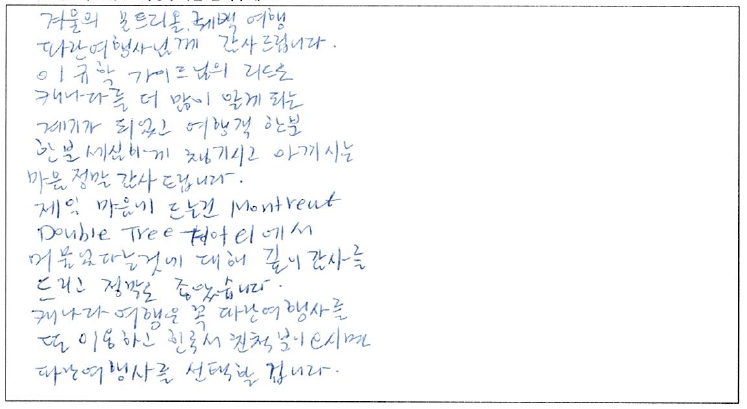 겨울의 몬트리올, 퀘벡 여행
파란여행사님께 감사드립니다.
이규학 가이드님의 리드로
캐나다를 더 많이 알게되는
계기가 되었고 여행객 한분
한분 세심하게 챙기시고 아끼시는
마음 정말 감사드립니다.
제일 마음에 드는건 Montreal
Double Tree 에서
머물 대해 깊이 감사를
드리고 정말로 좋았습니다.
캐나다 여행은 꼭 파란여행사를
또 이용하고 한국서 친척분이 오시면
파란여행사를 선택할 겁니다.